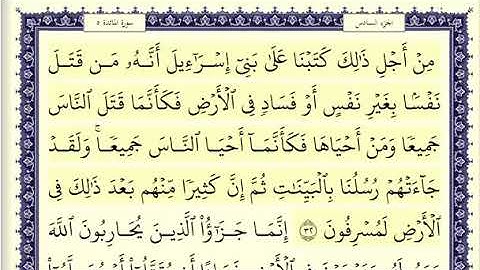 الجزء السادس سورة المائدة ٥
مِنْ أَجْلِ ذَٰلِكَ كَتَبْنَا عَلَىٰ بَنِىٓ إِسْرَٰٓءِيلَ أَنَّهُۥ مَن قَتَلَ
نَفْسًۢا بِغَيْرِ نَفْسٍ أَوْ فَسَادٍ فِى ٱلْأَرْضِ فَكَأَنَّمَا قَتَلَ ٱلنَّاسَ
جَمِيعًا وَمَنْ أَحْيَاهَا فَكَأَنَّمَآ أَحْيَا ٱلنَّاسَ جَمِيعًا ۚ وَلَقَدْ
جَآءَتْهُمْ رُسُلُنَا بِٱلْبَيِّنَٰتِ ثُمَّ إِنَّ كَثِيرًا مِّنْهُم بَعْدَ ذَٰلِكَ فِى
ٱلْأَرْضِ لَمُسْرِفُونَ ٣٢ إِنَّمَا جَزَٰٓؤُا۟ ٱلَّذِينَ يُحَارِبُونَ ٱللَّهَ